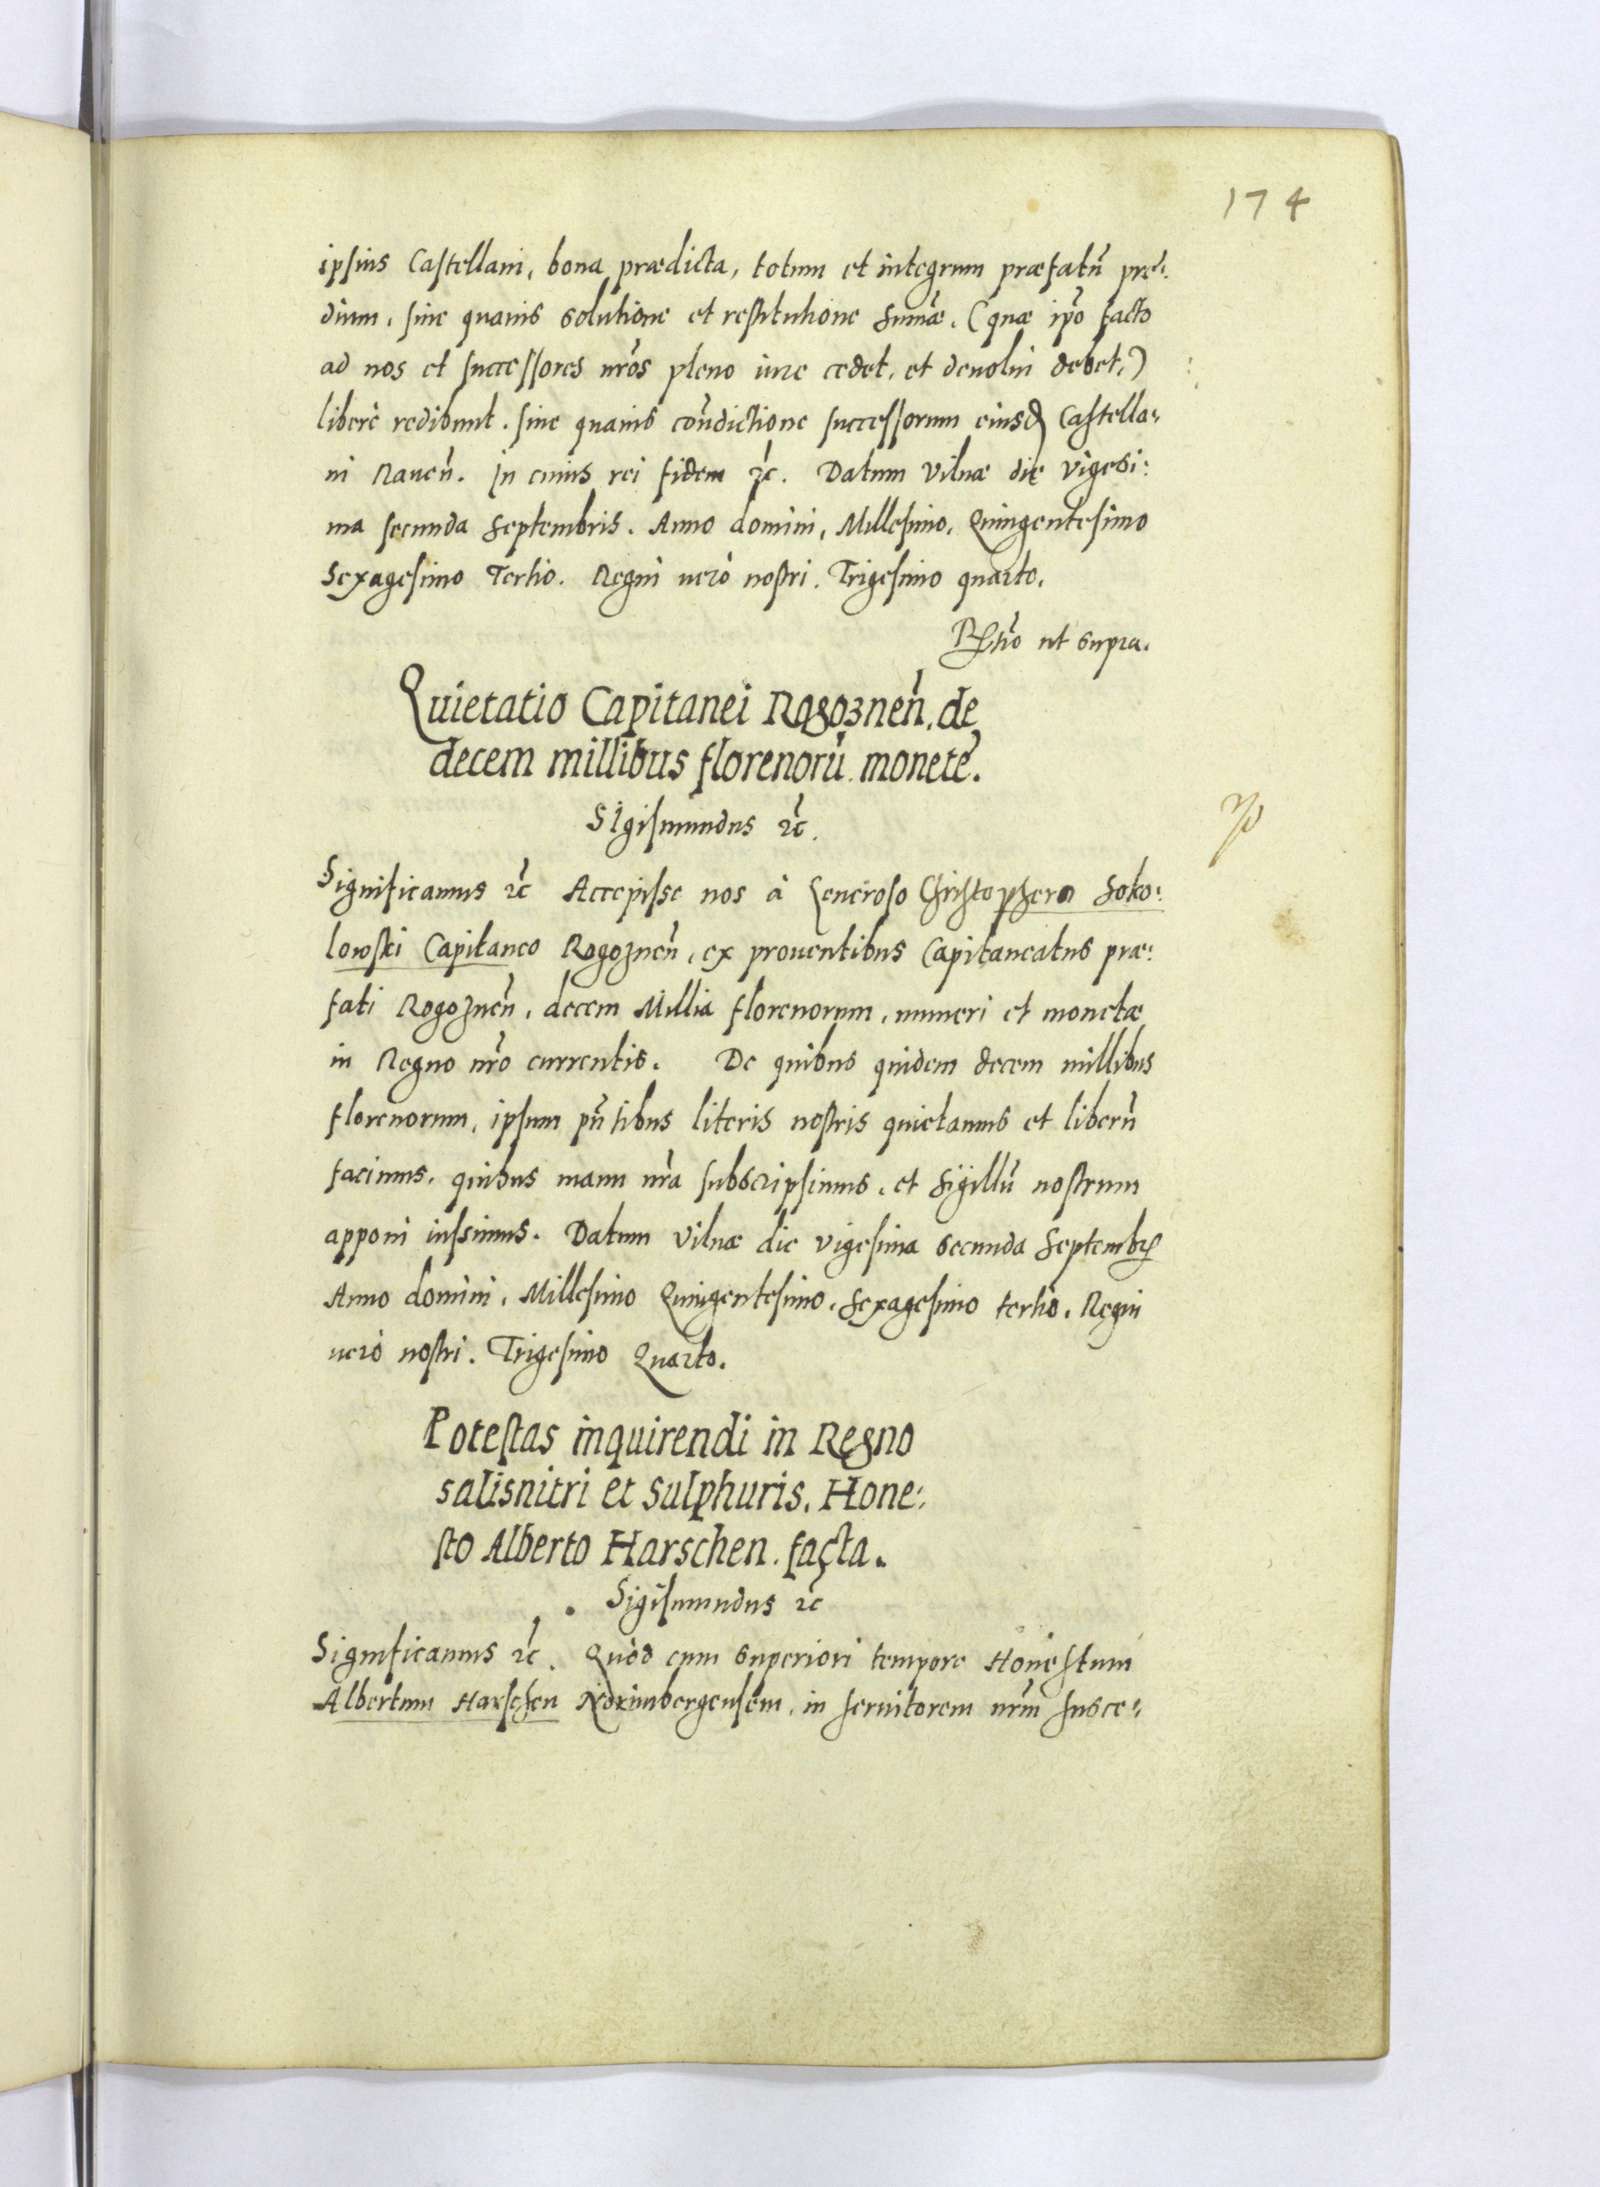 174
ipsius Castellani, bona prædicta, totum et integrum præfatũ præ:
dium, sine quauis solutione et restitutione sum̃æ. (quæ ip̃o facto
ad nos et successores nr̃os pleno iure cedet, et deuolui debet,)
liberè redibunt. sine quauis con̄dictione successorum eiusd Castella:
ni Rauen̄. In cuius rei fidem &c̃. Datum Vilnæ die vigesi:
ma secunda Septembris. Anno domini, Millesimo, Quingentesimo
Sexagesimo Tertio. Regni uerò nostri. Trigesimo quarto.
ut supra.
Quietatio Capitanei Rogoznen̄. de
decem millibus florenorũ monete.
Sigismundus &c̃.
Significamus &c̃ Accepisse nos à Generoso Christophero Soko:
lowski Capitaneo Rogoznen̄, ex prouentibus Capitaneatus præ:
fati Rogoznen̄, decem Millia florenorum, numeri et monetæ
in Regno nr̃o currentis. De quibus quidem decem millibus
florenorum, ipsum pn̄tibus literis nostris quietamus et liberũ
facimus. quibus manu nr̃a subscripsimus, et Sigillũ nostrum
apponi iussimus. Datum Vilnæ die vigesima secunda Septembr
Anno domini, Millesimo Quingentesimo, Sexagesimo tertio. Regni
uerò nostri. Trigesimo Quarto.
Potestas inquirendi in Regno
salisnitri et Sulphuris, Hone:
sto Alberto Harschen. facta.
Sigismundus &c̃
Significamus &c̃. Quòd cum superiori tempore Honestum
Albertum Harschen Norimbergensem, in seruitorem nr̃m susce: